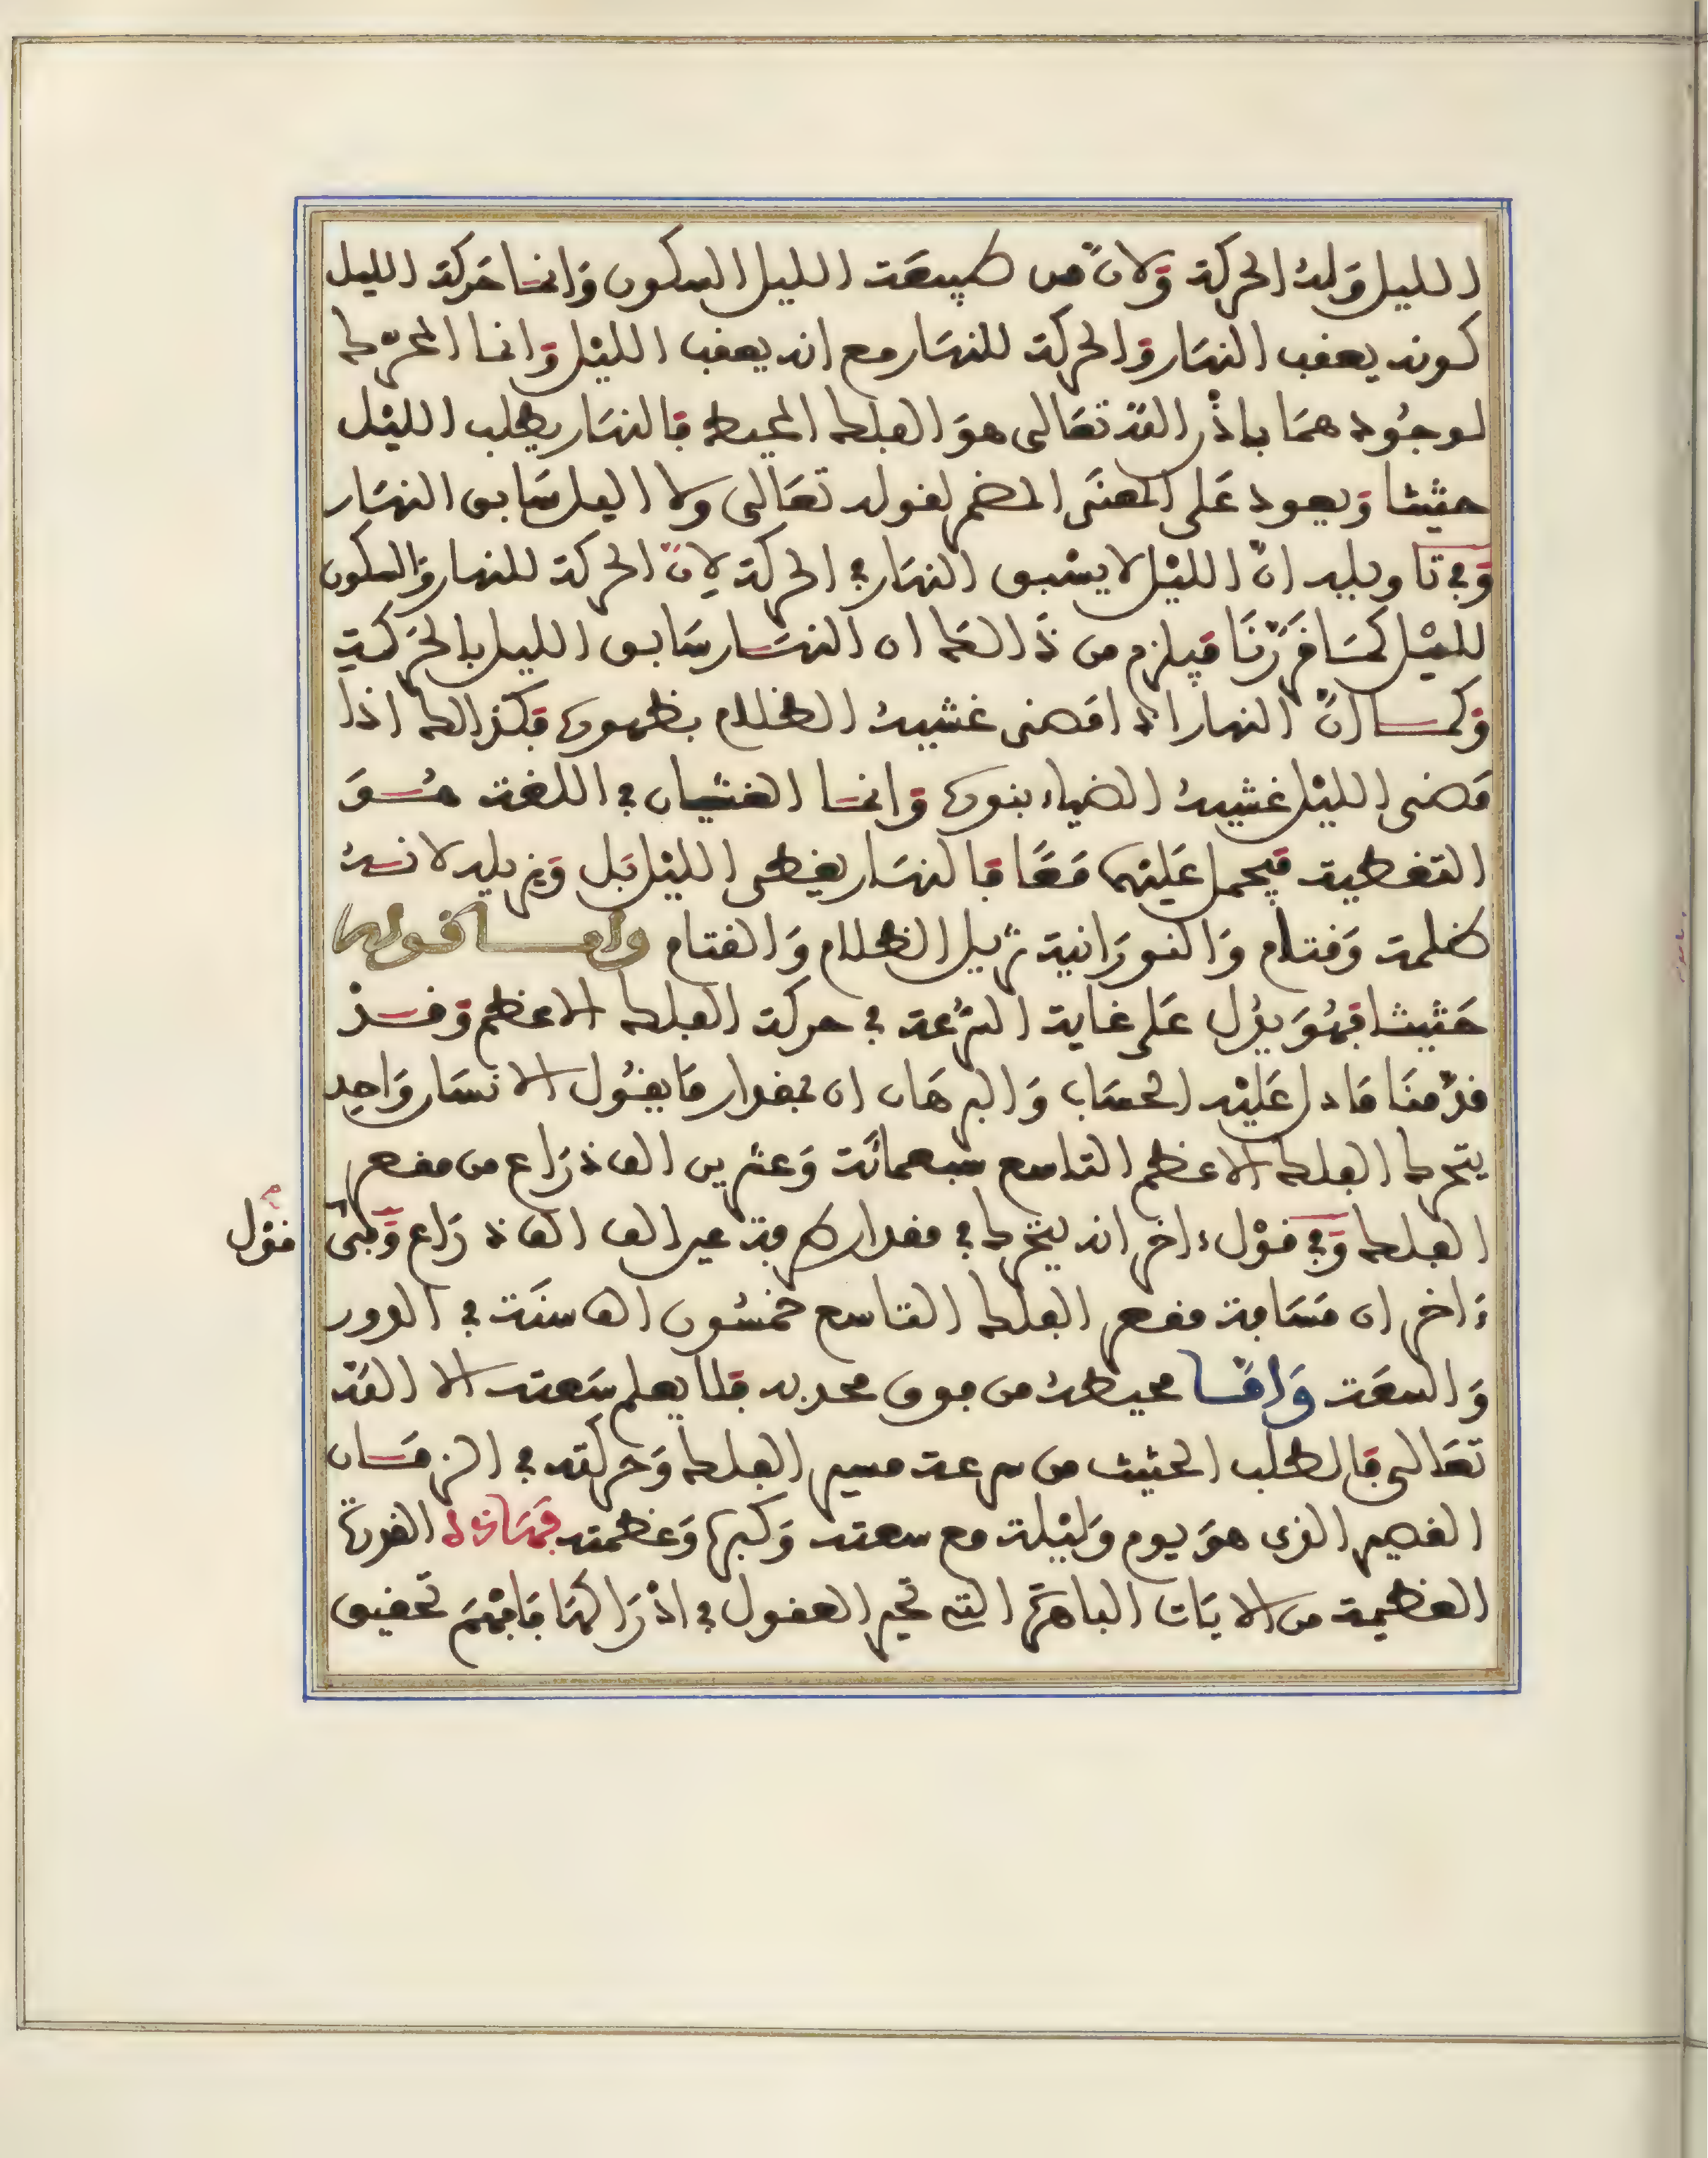 الليل وَلهُ الحركة وَلانّ من طبيعَت الليل السكون وَانمَا حَركة الليل
كونه يعقب النهَار وَالحركة للنهَار مع انه يعقب الليْل وَانما المحرّك
لوجُودهمَا باذْن اللّه تعَالى هوَ الفلك المحيط فالنهَار يطلب الليْل
حثيثا وَيعود عَلى المعنَى المضمر لقوله تعَالى ولا اليل سَابق النهَار
وَفي تاويله انّ الليْل لا يسْبق النهَار في الحركة لاِنّ الحركة للنهار وَالسكون
لليْل كمَا قَرّرْنَا فيلزم من ذَالك ان النهَار سَابق الليل بالحَركةِ
وَكما انّ النهار اذا قضى غشيهُ الظلام بظهوره فكذالك اذا
قضى الليْل غشيهُ الضياء بنوره وَانمَا الغشيان في اللغة هُوَ
التغطية فيحمل عَليْهمَا مَعًا فالنهَار يغطى الليْل بَل وَيزيله لانهُ
ظلمة وَقتام وَالنورَانية تزيل الظلام وَالقتام وامَا قوله
حَثيثا فهُوَ يدُل عَلى غاية السّرْعة في حركة الفلك الاعظم وَقدْ
قدّمنَا مَا دل عَليْه الحسَاب وَالبرهَان ان بمقدار مَا يقُول الانسَان وَاحِد
يتحرك الفلك الاعظم التاسع سبعمائة وَعشرين الف ذرَاع من مقعر
الفلك وَفي قوْل ءاخر انه يتحرك في مقدار طرفة عين الف الف ذرَاع وَفى
قوْل
ءاخر ان مَسَافة مقعر الفلك التاسع خمسُون الف سنَة في الدور
وَالسعَة وَامَّا محيطهُ من فوق محدبه فلا يعلم سَعته الا اللّه
تعَالى فالطلب الحثيث من سرعة مسير الفلك وَحركته في الزمَان
القصير الذى هوَ يوم وَليْلة مع سعته وَكبره وَعظمته فهَاذه القدرة
العظيمة من الايَات الباهرَة التى تحير العقول في ادْرَاكهَا فافْهَمْ تحقيق